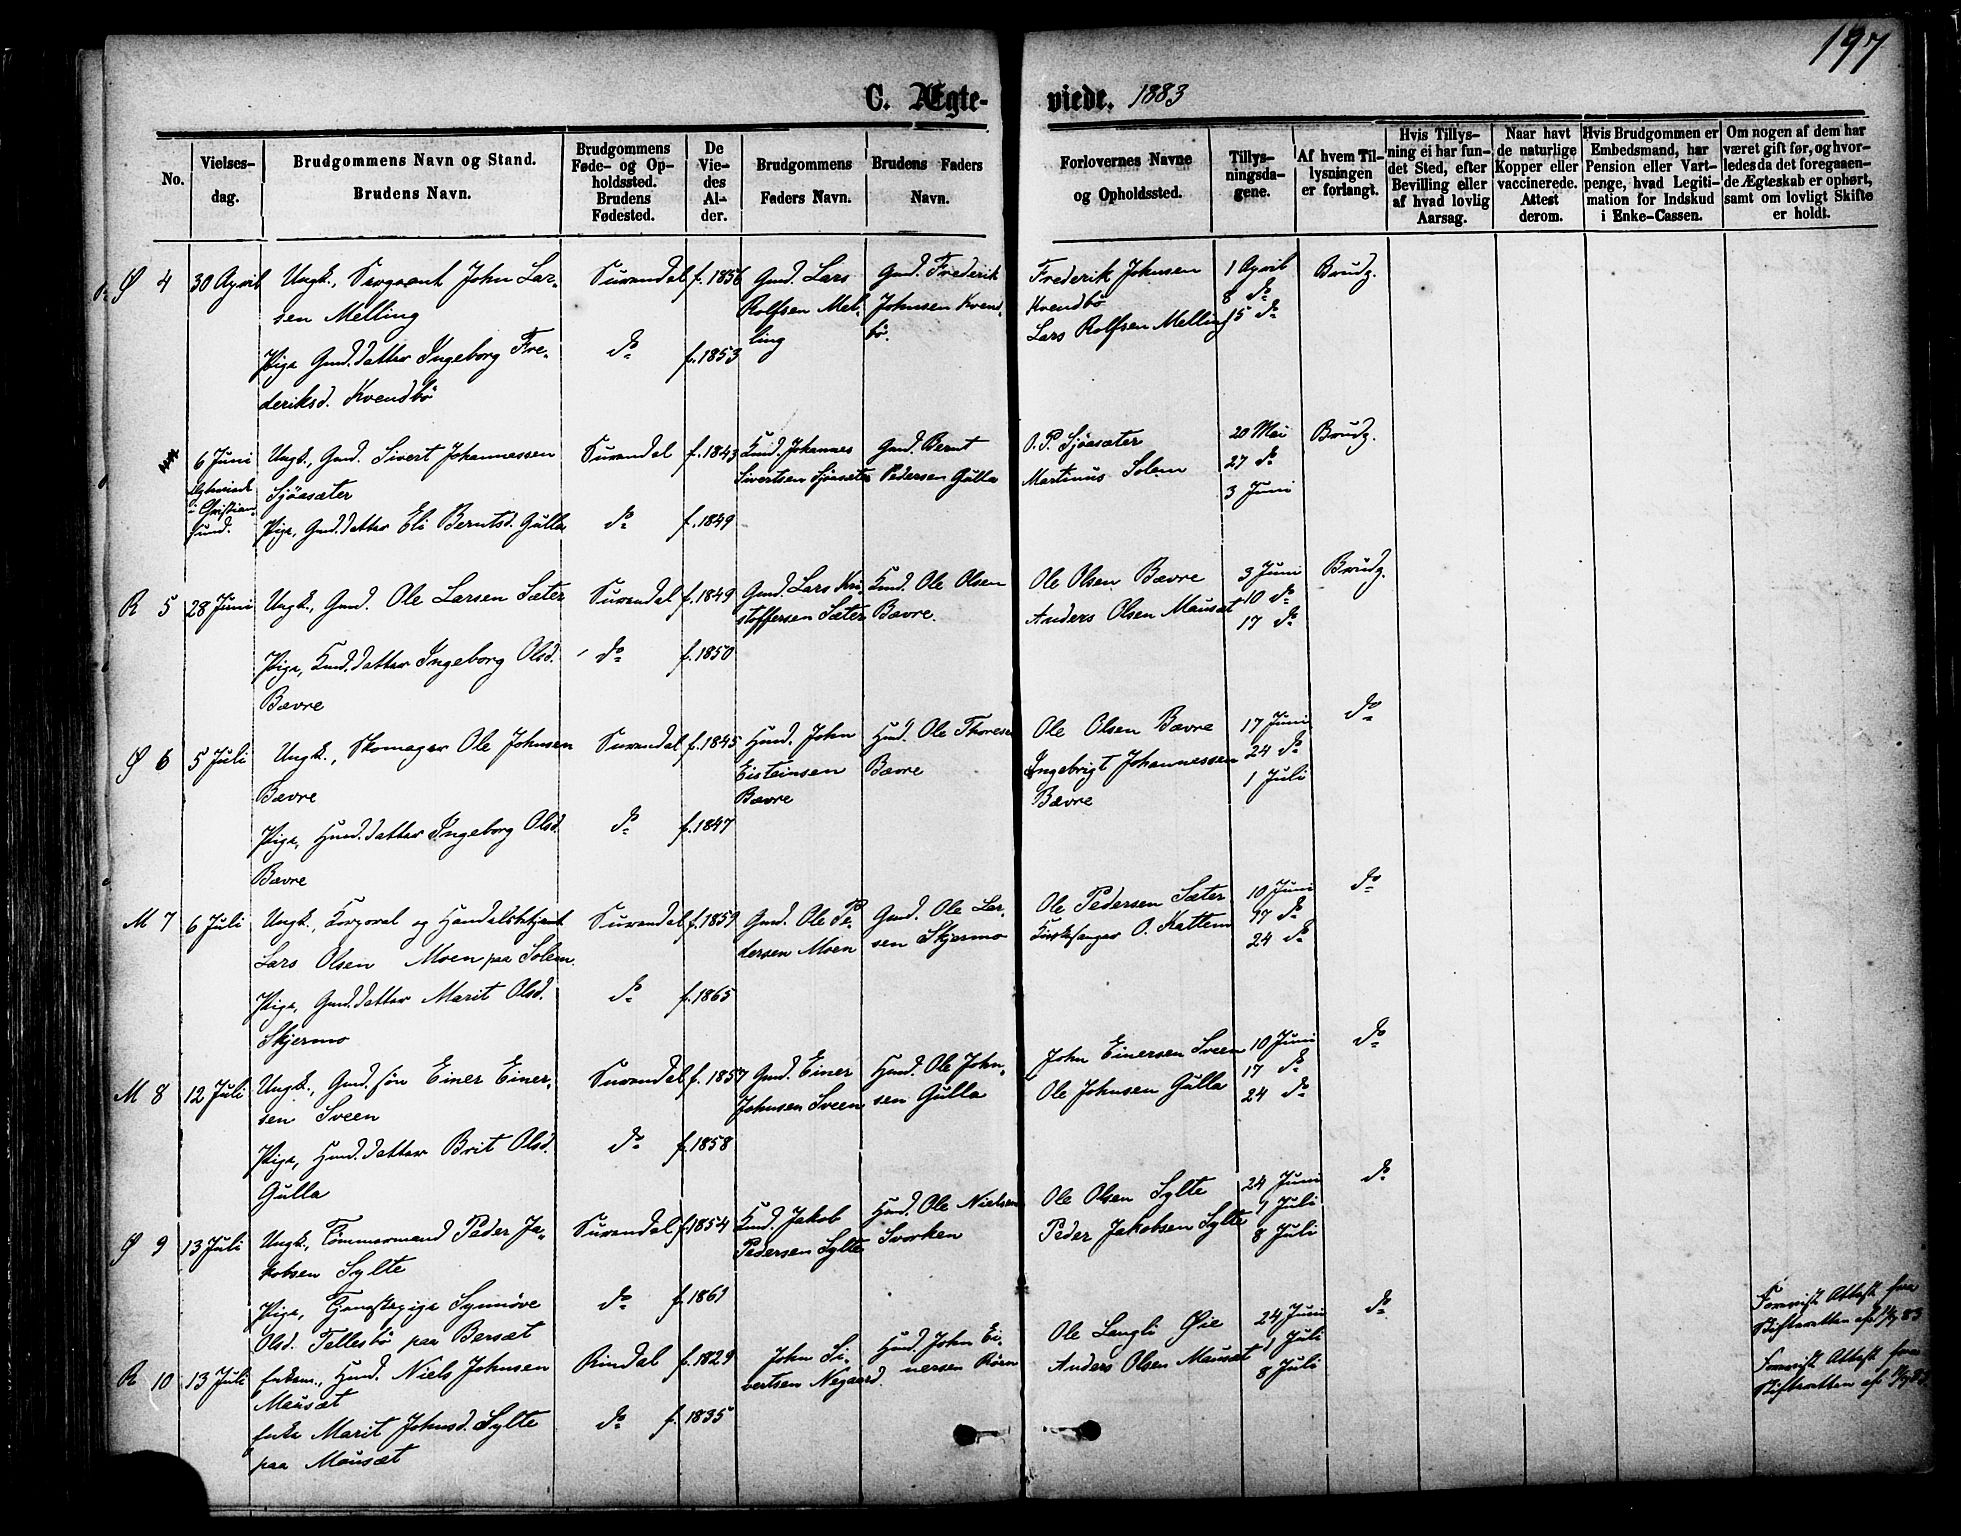 197
C. Ægte- viede. 1883
No.
Vielses-
dag.
Brudgommens Navn og Stand.
Brudens Navn.
Brudgommens
Føde- og Op-
holdssted.
Brudens
Fødested.
De
Vie-
des
Al-
der.
Brudgommens
Faders Navn.
Brudens Faders
Navn.
Forlovernes Navne
og Opholdssted.
Tillys-
ningsda-
gene.
Af hvem Til-
lysningen
er forlangt.
Hvis Tillys-
ning ei har fun-
det Sted, efter
Bevilling eller
af hvad lovlig
Aarsag.
Naar havt
de naturlige
Kopper eller
vaccinerede.
Attest
derom.
Hvis Brudgommen er
Embedsmand, har
Pension eller Vart-
penge, hvad Legiti-
mation for Indskud
i Enke-Cassen.
Om nogen af dem har
været gift før, og hvor-
ledes da det foregaaen-
de Ægteskab er ophørt,
samt om lovligt Skifte
er holdt.
Ø 4
30 April
Ungk., Sergeant John Lar-
sen Melling
Pige Gmd.datter Ingeborg Fre-
deriksd. Kvendbö
Surendal
do
f. 1856
f. 1853
Gmd. Lars
Rolfsen Mel-
ling
Gmd. Frederik
Johnsen Kvend-
bö.
Frederik Johnsen
Kvendbö
Lars Rolfsen Melling
1 April
8 do
15 do
Brudg.
6 Juni
Ægteviede
i Christian-
sund.
Ungk., Gmd. Sivert Johannessen
Sjöasæter
Pige, Gmd.datter Eli Berntsd. Gulla
Surendal
do
f. 1843
f. 1849
Kmd. Johannes
Sivertsen Sjöasæter
Gmd. Bernt
Pedersen Gulla
O. P. Sjöasæter
Martinus Solem
20 Mai
27 do
3 Juni
Brudg.
R 5
28 Juni
Ungk., Gmd. Ole Larsen Sæter
Pige, Kmd.datter Ingeborg Olsd.
Bævre
Surendal
do
f. 1849
f. 1850
Gmd. Lars Kri
stoffersen Sæter
Kmd. Ole Olsen
Bævre.
Ole Olsen Bævre
Anders Olsen Mausæt
3 Juni
10 do
17 do
Brudg.
Ø 6
5 Juli
Ungk., Skomager Ole Johnsen
Bævre
Pige, Husmd.datter Ingeborg Olsd.
Bævre
Surendal
do
f. 1845
f. 1847
Husmd. John
Eisteinsen
Bævre
Husmd. Ole Thoresen
Bævre
Ole Olsen Bævre
Ingebrigt Johannessen
Bævre
17 Juni
24 do
1 Juli
do
M 7
6 Juli
Ungk., Korporal og Handelsbetjent
Lars Olsen Moen paa Solem.
Pige, Gmd.datter Marit Olsd.
Skjermo
Surendal
do
f. 1859
f. 1865
Gmd. Ole Pe-
dersen Moen
Gmd. Ole Lar-
sen Skjermo
Ole Pedersen Sæter
Kirkesanger O. Kattem
10 Juni
17 do
24 do
do
M 8
12 Juli
Ungk., Gmd. søn Einer Einer-
sen Sveen
Pige, Husmd.datter Brit Olsd.
Gulla
Surendal
do
f. 1857
f. 1858
Gmd. Einer
Johnsen Sveen
Husmd. Ole John-
sen Gulla
John Einersen Sveen
Ole Johnsen Gulla
10 Juni
17 do
24 do
do
Ø 9
13 Juli
Ungk., Tömmermand Peder Ja-
kobsen Sylte
Pige, Tjenestepige Synnöve
Olsd. Tellesbö paa Bersæt
Surendal
do
f. 1854
f. 1861
Kmd. Jakob
Pedersen Sylte
Husmd. Ole Nielsen
Svorken
Ole Olsen Sylte
Peder Jakobsen Sylte
24 Juni
1 Juli
8 Juli
do
R 10
13 Juli
Enkem., Husmd. Niels Johnsen
Mausæt
Enke Marit Johnsd. Sylte
paa Mausæt
Rindal
do
f. 1829
f. 1835
John Si-
vertsen Negaard
Husmd. John Ei-
nersen Rörn
Ole Langli Øie
Anders Olsen Mausæt
24 Juni
1 Juli
8 Juli
do
Forevist Attest fra
Skifteretten af
Forevist Attest fra
Skifteretten af